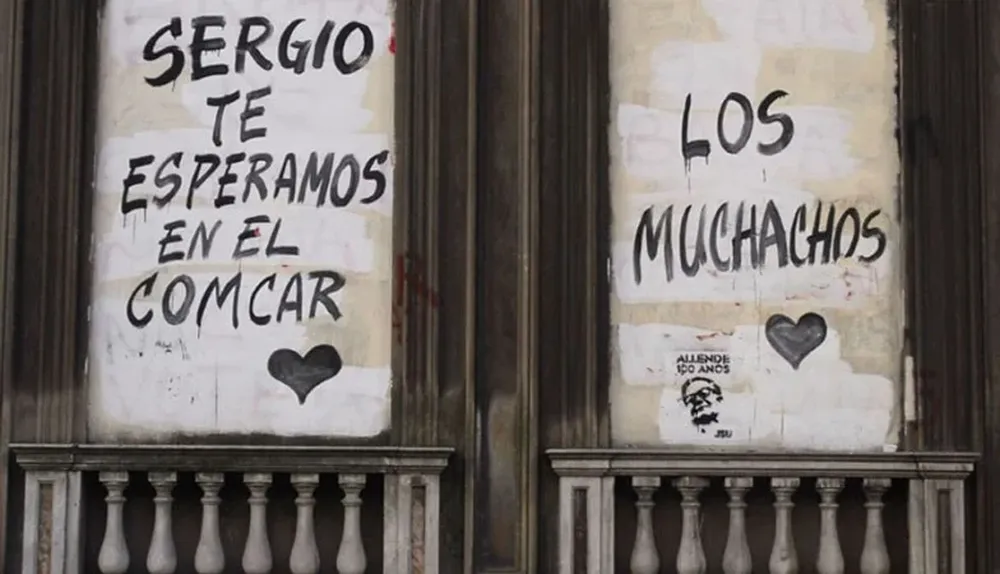 SERGIO
TE
ESPERAMOS
EN EL
COMCAR
LOS
MUCHACHOS
ALLENDE
100 AÑOS
JSU